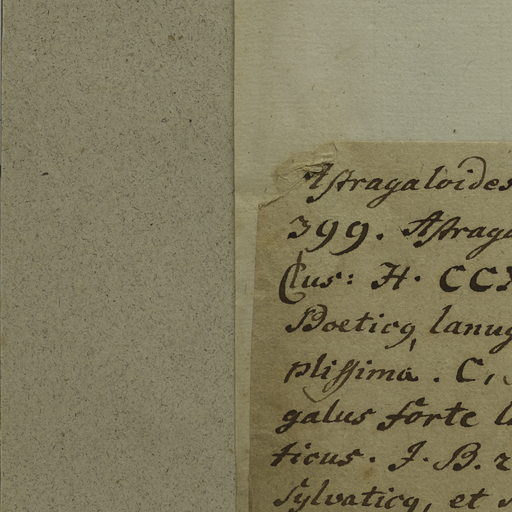 Astragaloides
399. Astraga
Clus: H. CCX
Boeticq lanug
plissima. C,
galus forte la
ticus. J. B. 2
sylvaticq, et